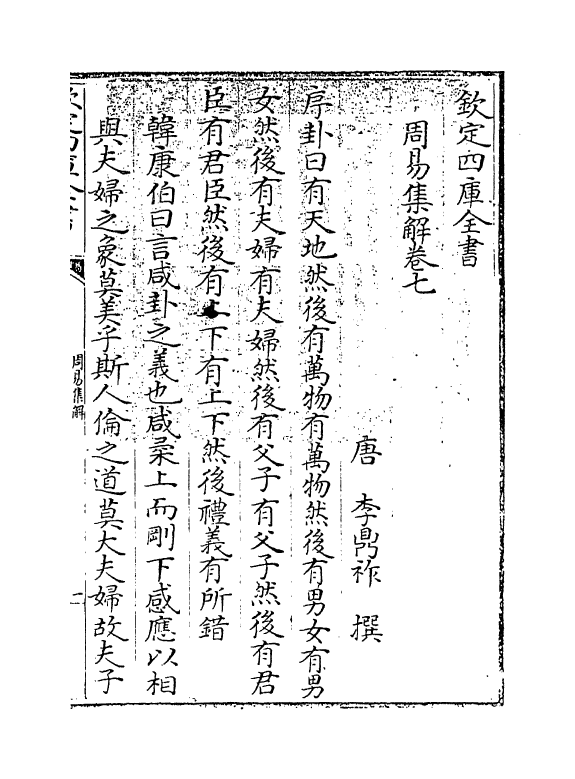 欽定四庫全書
周易集解卷七
唐 李鼎祚 撰
序卦曰有天地然後有萬物有萬物然後有男女有男
女然後有夫婦有夫婦然後有父子有父子然後有君
臣有君臣然後有上下有上下然後禮義有所錯
韓康伯曰言咸卦之義也咸柔上而剛下感應以相
與夫婦之象莫美乎斯人倫之道莫大夫婦故夫子
欽定四庫全書
周易集解